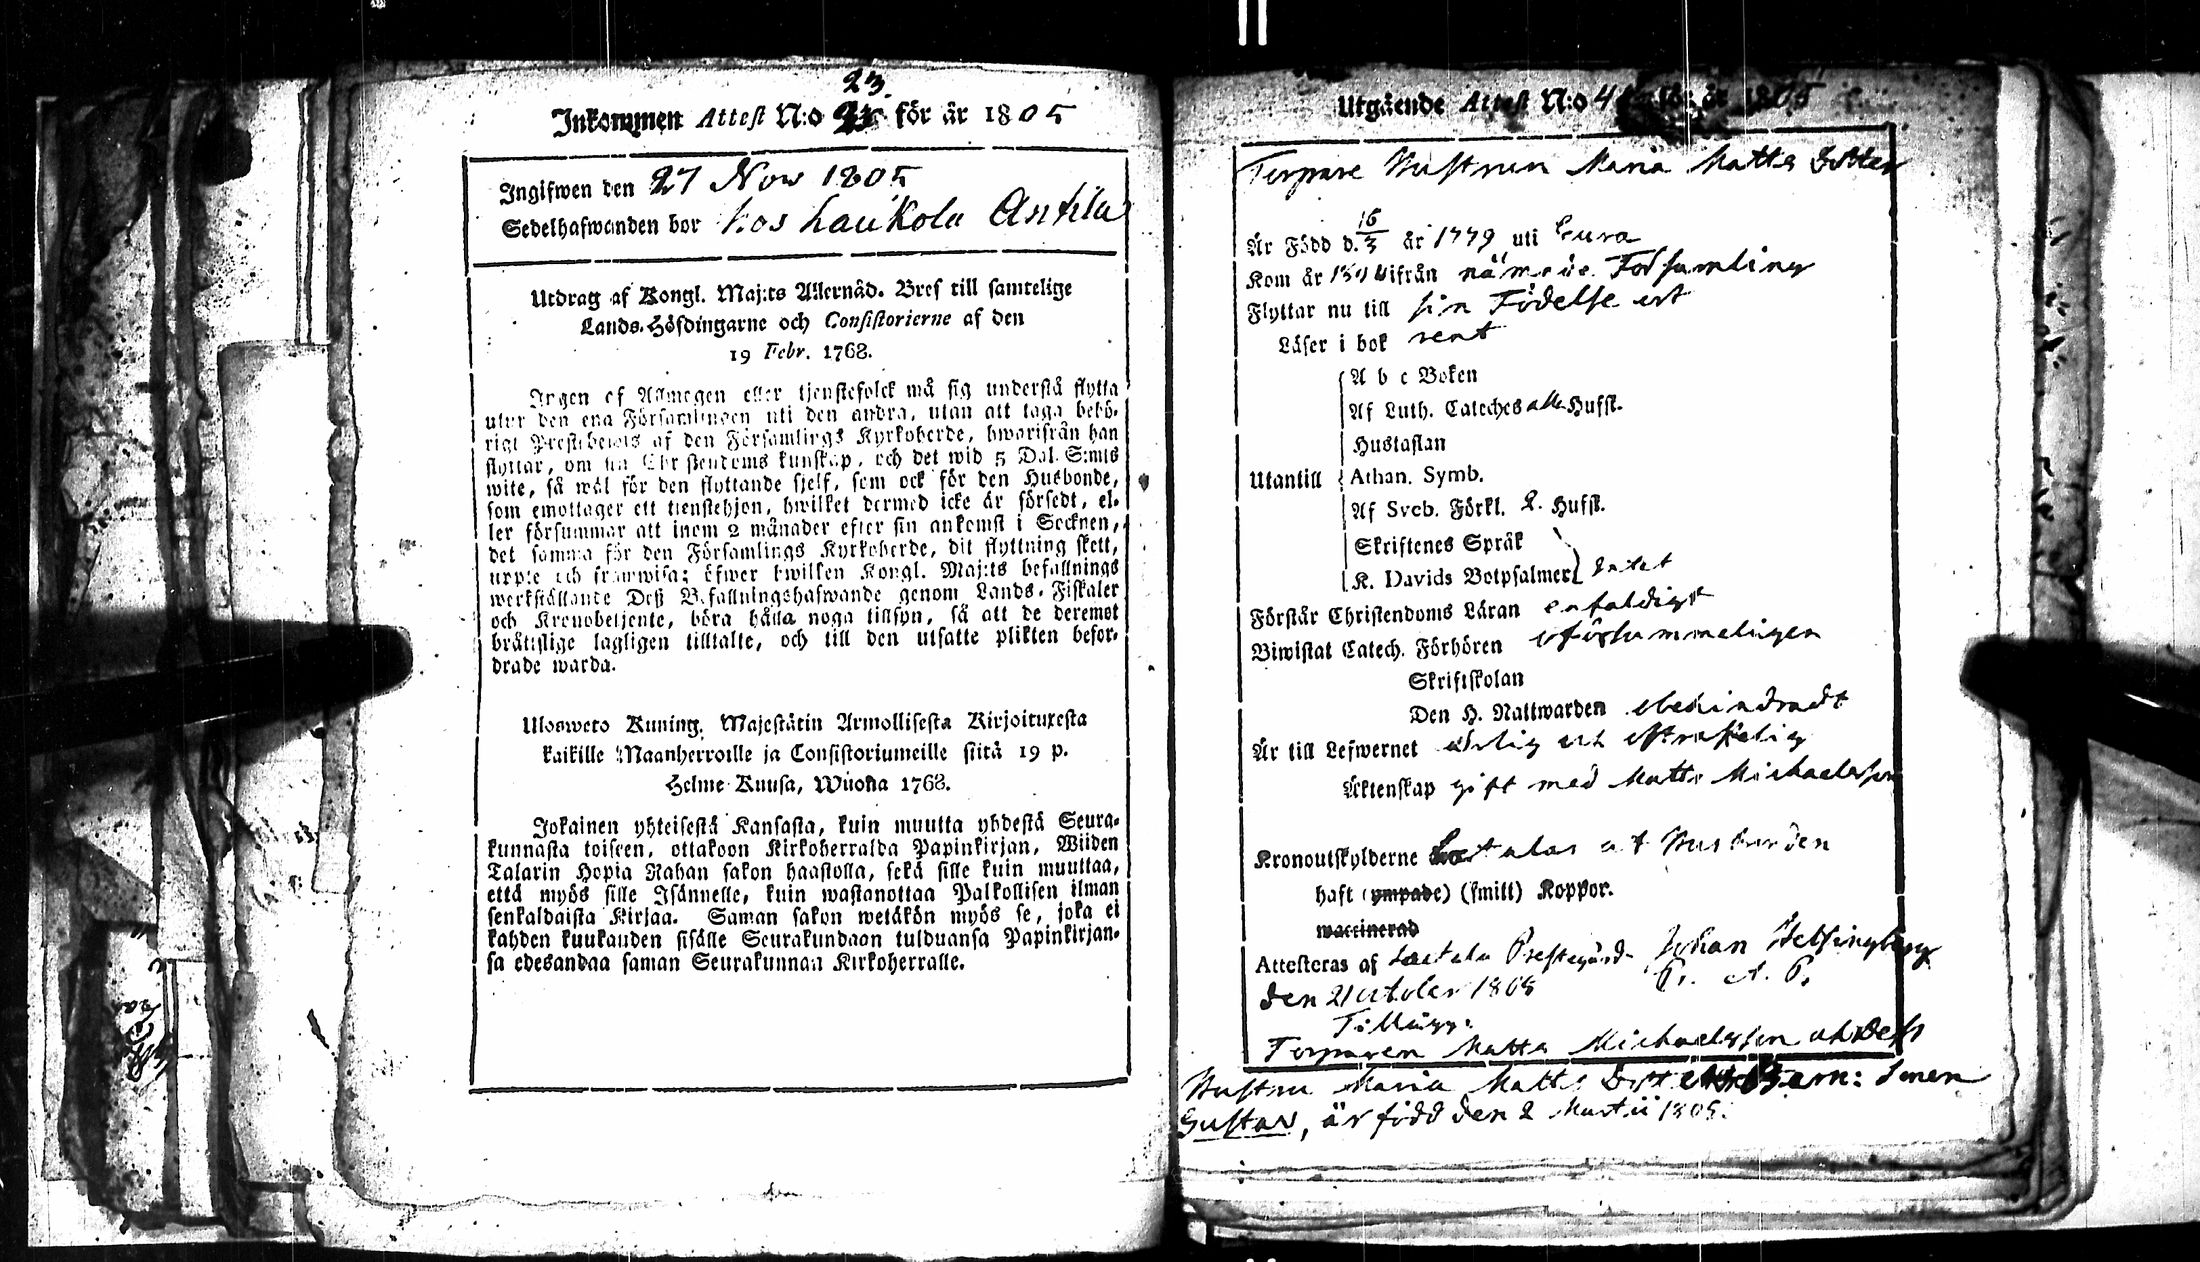 23.
Inkommen Attest N:o 23 för är 1805
Ingifwen den 27 Nov 1805
Sedelhafwanden bor hos Laukola Anttila
Utdrag af Kongl. Maj:ts Allernåd. Bref till samtelige
Lands-Höfdingarne och Consistorierne af den
19 Febr. 1768.
Ingen af Allmogen eller tjenstefolck må sig understå flytta
utur den ena Församlingen uti den andra, utan att taga behö-
rigt Prestebewis af den Församlings Kyrkoherde, hwarifrån han
flyttar, om sin Christendoms kunskap, och det wid 5 Dal. S:mts
wite, så wäl för den flyttande sjelf, som ock för den Husbonde,
som emottager ett tienstehjon, hwilket dermed icke är försedt, el-
ler försummar att inom 2 månader efter sin ankomst i Socknen,
det samma för den Församlings Kyrkoherde, dit flyttning skett,
upte och framwisa; öfwer hwilken Kongl. Maj:ts befallnings
werkställande Deß Befallningshafwande genom Lands-Fiskaler
och Kronobetjente, böra hålla noga tillsyn, så att de deremot
bråtislige lagligen tilltalte, och till den utsatte plikten befor-
drade warda.
Ulosweto Kuning. Majestätin Armollisesta Kirjoituxesta
kaikille Maanherroille ja Consistoriumeille siitä 19 p.
Helme-Kuusa, Wuonna 1768.
Jokainen yhteisestä Kansasta, kuin muutta yhdestä Seura-
kunnasta toiseen, ottakoon Kirkoherralda Papinkirjan, Wiiden
Talarin Hopia Rahan sakon haastolla, sekä sille kuin muuttaa,
että myös sille Isännelle, kuin wastanottaa Palkollisen ilman
senkaldaista Kirjaa. Saman sakon wetäkön myös se, joka ei
kahden kuukauden sisälle Seurakundaan tulduansa Papinkirjan-
sa edesandaa saman Seurakunnan Kirkoherralle.
Utgående Attest N:o 4 för är 1805
Torpare Hustrun Maria Matts Dotter
Är Född d. 16/3 år 1779 uti Eura
Kom år 1804 ifrån nämde Församling
Flyttar nu till sin Födelse ort
Läser i bok rent
A b c Boken
Af Luth. Cateches alla Hufst.
Hustaflan
Utantill Athan. Symb.
Af Sveb. Förkl. 2. Hufst.
Skriftenes Språk
K. Davids Botpsalmer
Förstår Christendoms Läran enfaldigt
Biwistat Catech. Förhören oförsummeligen
Skriftskolan
Den H. Nattwarden obehindradt
Är till Lefwernet ärlig och ostraffelig
Äktenskap gift med Matts Michaelsson
Kronoutskylderne betalas af Husbonden
haft (ympade) (smitt) Koppor.
waccinerad
Attesteras af Laetala Prestegård Johan Helsingberg
den 21 october 1805 Pr. A. P.
Tillägg:
Torparen Matts Michaelsson och Dess
Hustru Maria Matts Dotters Barn: Sonen
Gustav, är född den 2 Martii 1805.